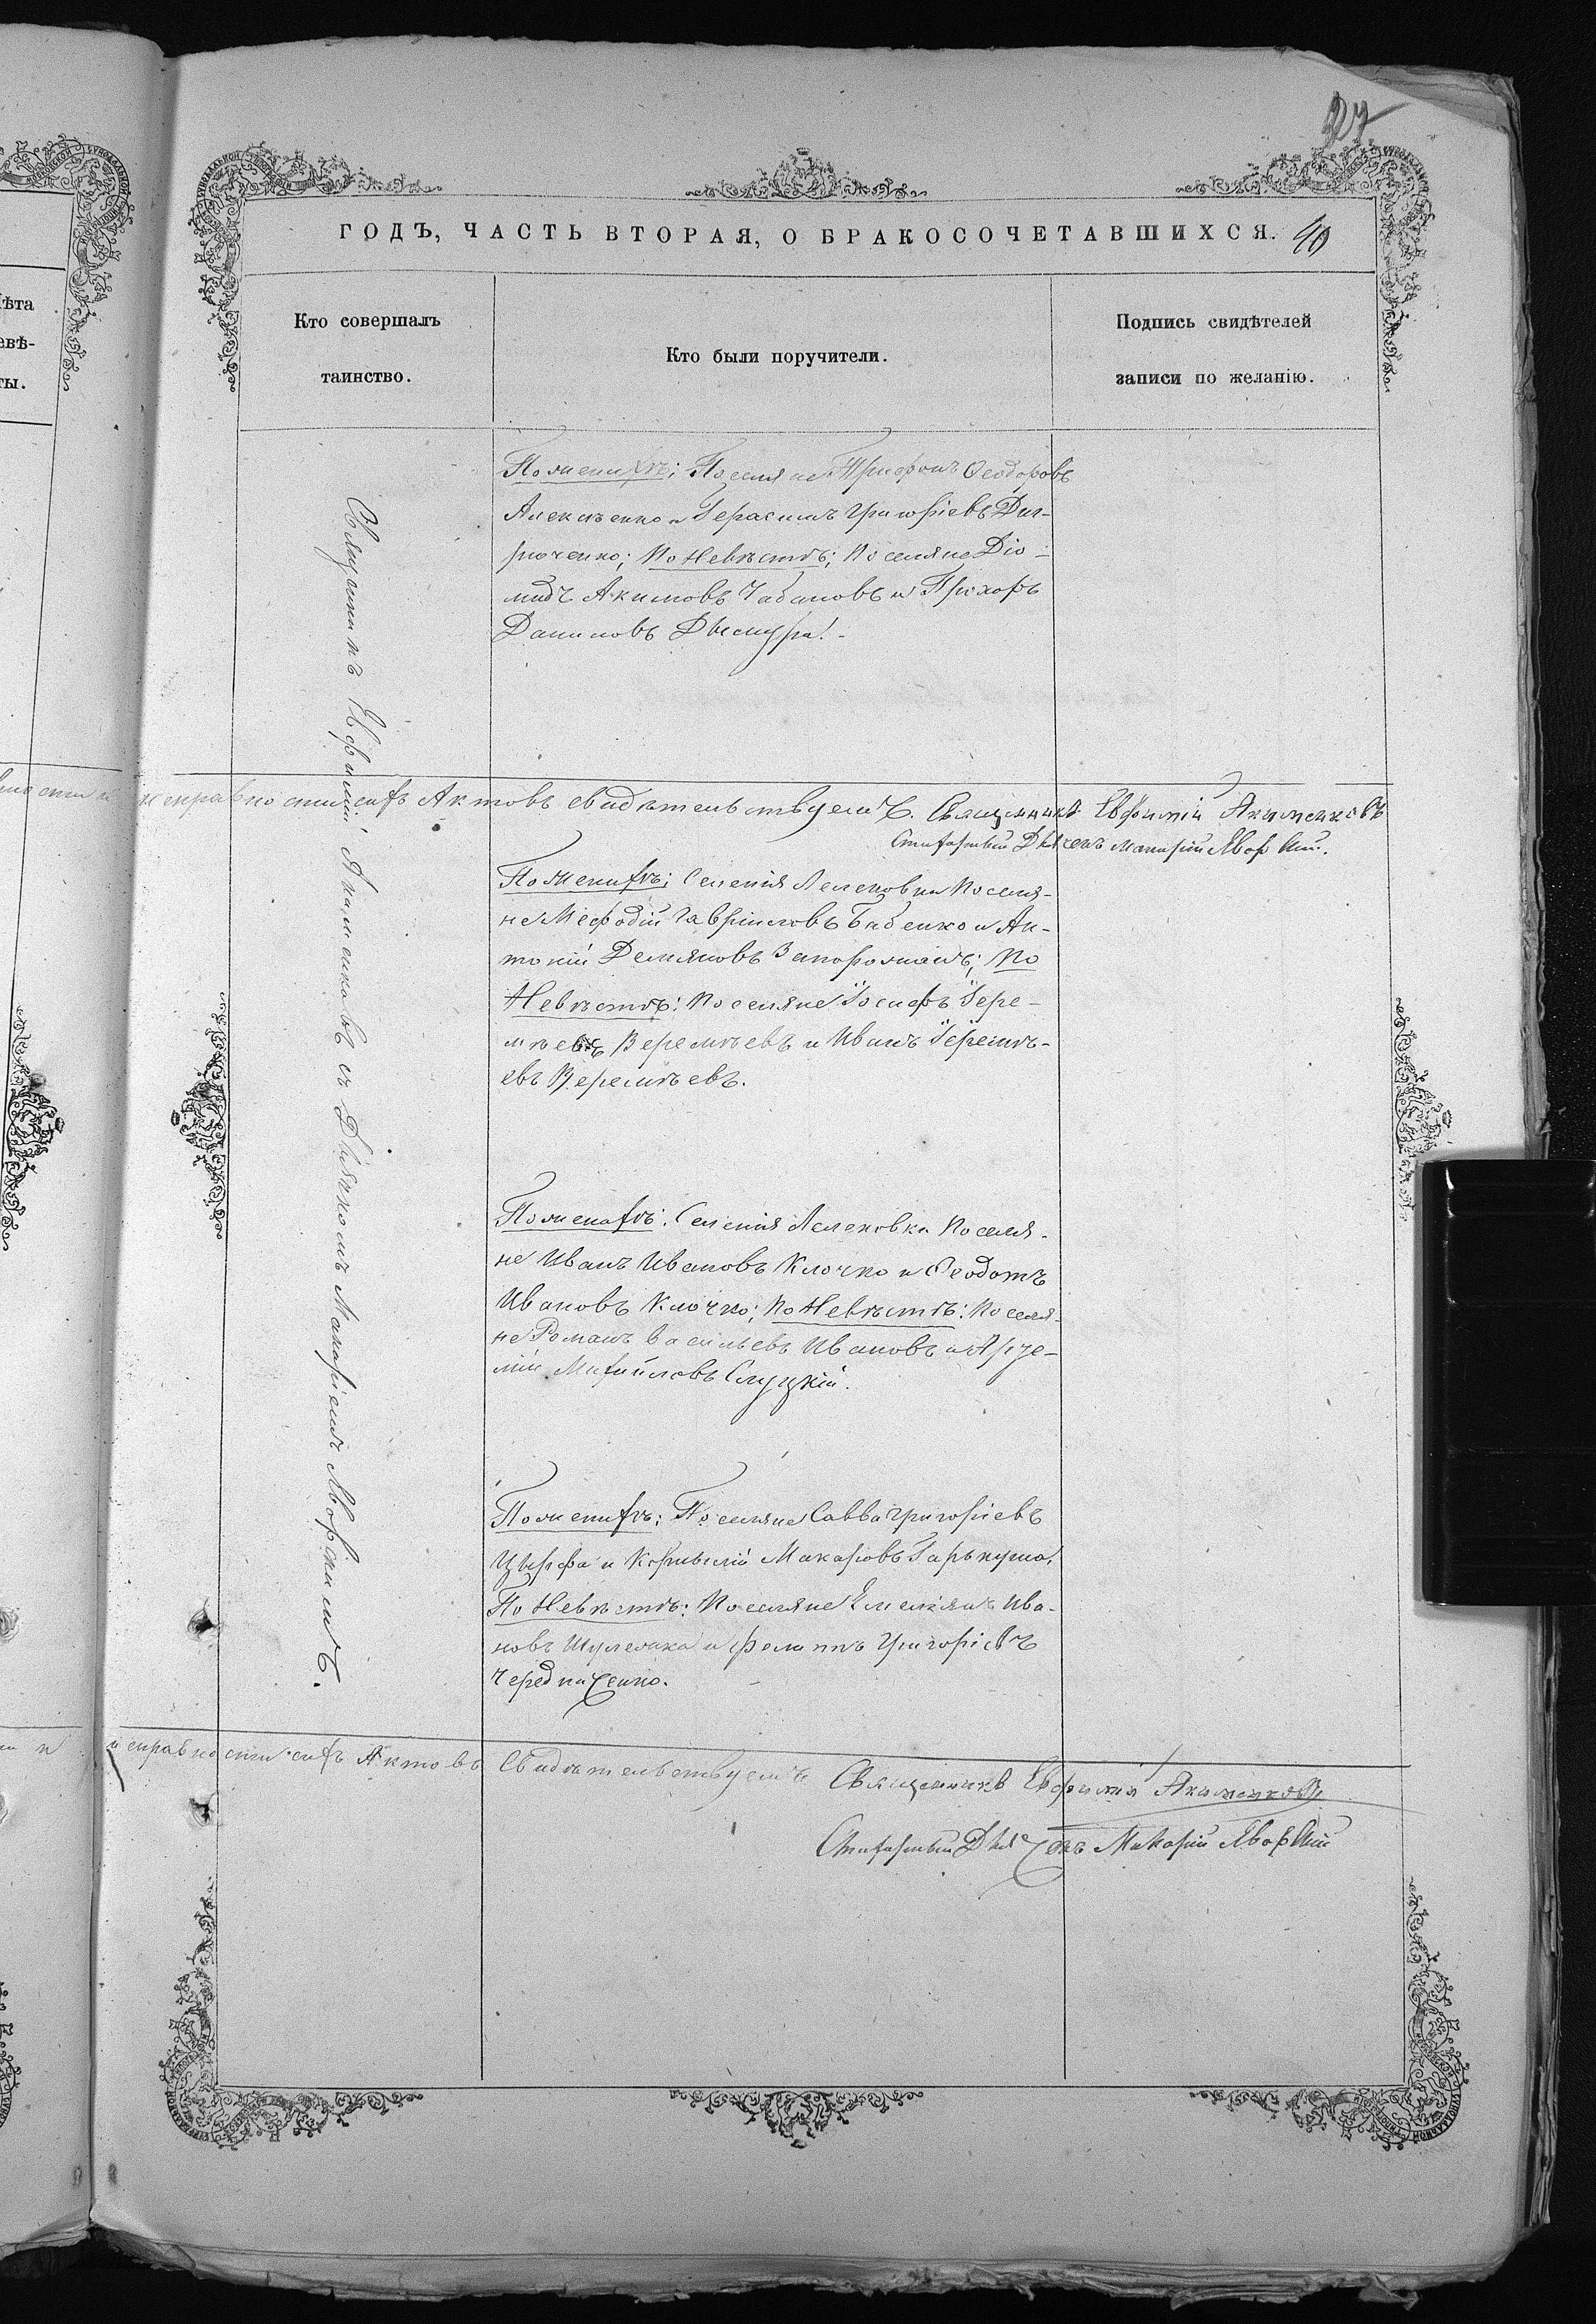 327
ГОДЪ, ЧАСТЬ ВТОРАЯ, О БРАКОСОЧЕТАВШИХСЯ. 40
Кто совершалъ
таинство.
Кто были поручители.
Подпись свидѣтелей
записи по желанію.
Священникъ Ефимій Акименковъ съ Дьячкомъ Макаріемъ Яворскимъ.
По женихѣ: Поселяне Трифонъ Ѳеодоровъ
Алексѣенко и Герасимъ Григоріевъ
По Невѣстѣ: Поселяне Діо-
мидъ Акимовъ Чабановъ и Прохоръ
Даниловъ
исправности сихъ Актовъ свидѣтельствуемъ. Священникъ Евфимій Акименковъ
Штатный Дьячекъ Макарій Яворскій.
По Женихѣ: Селенія Лелековки Поселя-
не Меѳодій Гавріиловъ Бабенко и Ан-
тоній Демяновъ Запорожецъ; По
Невѣстѣ: Поселяне Іосифъ Іере-
мѣевъ Веремѣевъ и Иванъ Іеремѣ-
евъ Веремѣевъ.
По женихѣ: Селенія Лелековки Поселя-
не Иванъ Ивановъ Клочко и Ѳеодотъ
Ивановъ Клочко; По Невѣстѣ: Поселя-
не Романъ Васильевъ Ивановъ и Арте-
мій Михайловъ Слуцкій.
По женихѣ: Поселяне Савва Григоріевъ
и Корнилій Макаровъ Гарькуша,
По Невѣстѣ: Поселяне Емеліянъ Ива-
новъ Шулежка и Филиппъ Григоріевъ
Чередниченко.
исправности сихъ Актовъ Свидѣтельствуемъ Священникъ Евфимій Акименковъ
Штатный Дьячекъ Макарій Яворскій
ѣта
евѣ-
ты.